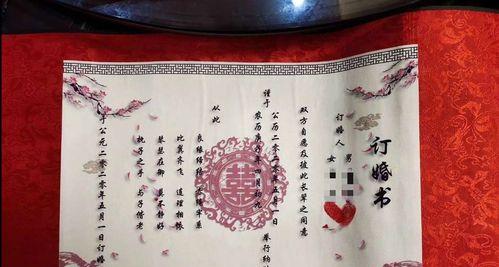 订婚书
订婚人 男
女
双方自愿及彼此长辈之同意
谨于
公历二零二零年五月一日 举行纳
农历庚子年四月初九
从此
良缘缔结
比翼齐飞 连理相依
琴瑟在御 莫不静好
执子之手 与子偕老
于公元二零二零年五月一日订婚
囍